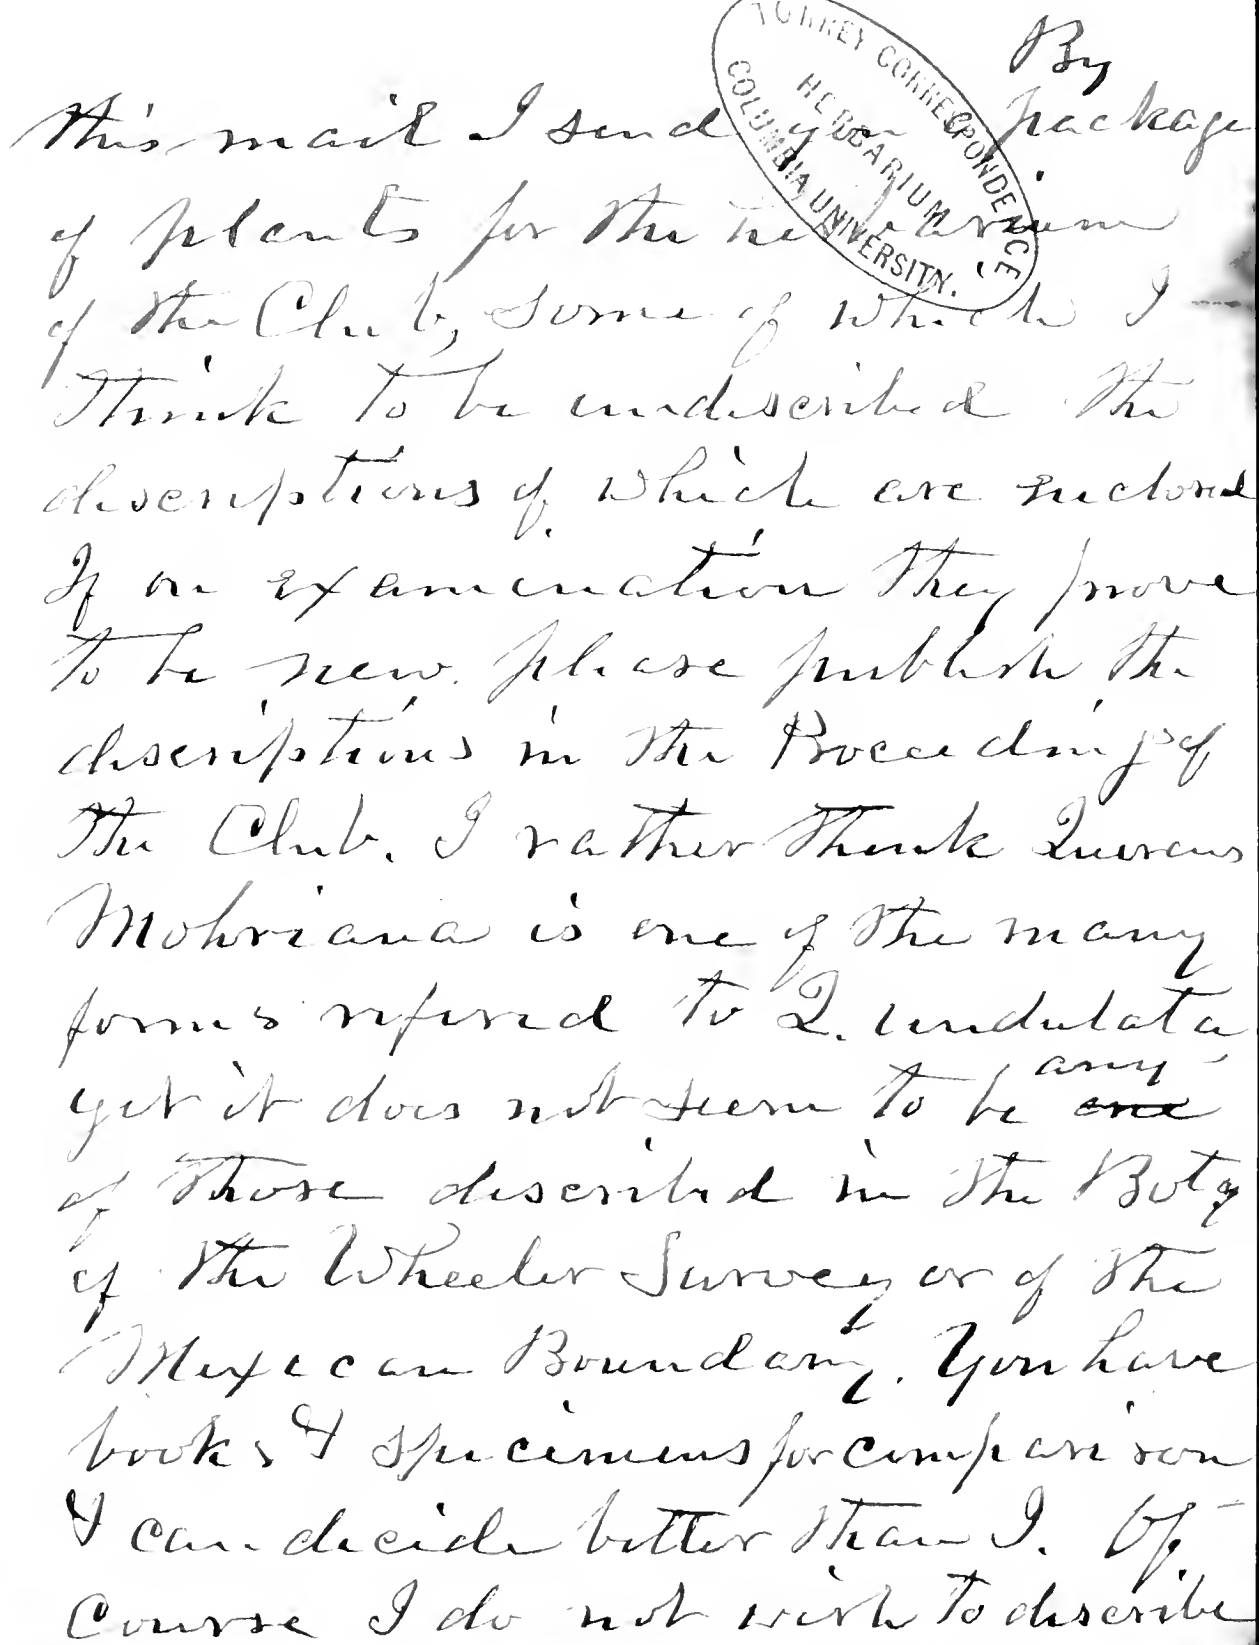 By
this mail I send you a package
of plants for the herbarium
of the Club, some of which I
think to be undescribed the
descriptions of which are enclosed
If on examination they prove
to be new. please publish the
descriptions in the Proceedings of
the Club. I rather think Quercus
Mohriana is one of the many
forms refered to Q. undulata
yet it does not seem to be any one
of those described in the Boty
of the Wheeler Survey or of the
Mexican Boundary. You have
books & specimens for comparison
& can decide better than I. Of
Course I do not wish to describe
TORREY CORRESPONDENCE
HERBARIUM
COLUMBIA UNIVERSITY.